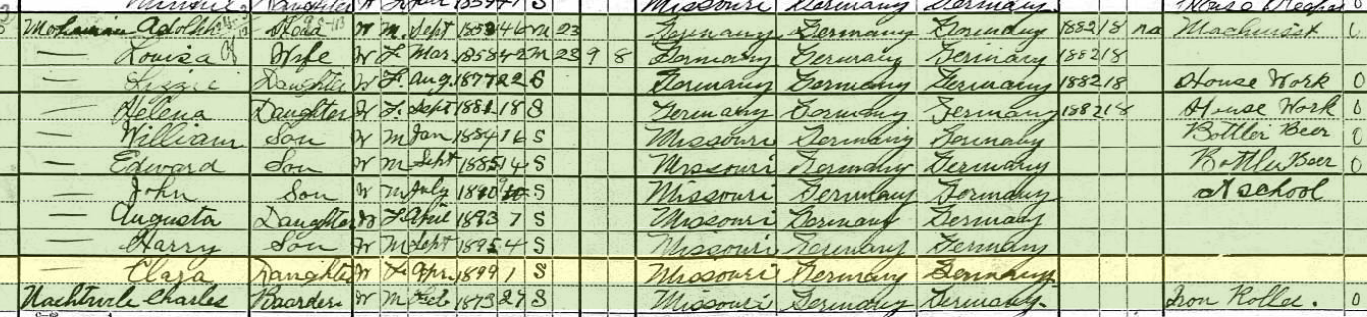 Daughter W Missouri Germany Germany
Adolph Head W M Sept 1853 46 M 23 Germany Germany Germany 1882 18 na Machinist 0
— Louisa Wife W F Mar 1858 42 M 23 9 8 Germany Germany Germany 1882 18
— Lizzie Daughter W F Aug 1877 22 S Germany Germany Germany 1882 18 House Work 0
— Helena Daughter W F Sept 1881 18 S Germany Germany Germany 1882 18 House Work 0
— William Son W M Jan 1884 16 S Missouri Germany Germany Bottler Beer 0
— Edward Son W M Sept 1885 14 S Missouri Germany Germany Bottler Beer 0
— John Son W M July S Missouri Germany Germany At school
— Augusta Daughter W F April 1893 7 S Missouri Germany Germany
— Harry Son W M Sept 1895 4 S Missouri Germany Germany
— Clara Daughter W F Apr 1899 1 S Missouri Germany Germany
Charles Boarder W M Feb 1873 27 S Missouri Germany Germany Iron Roller 0